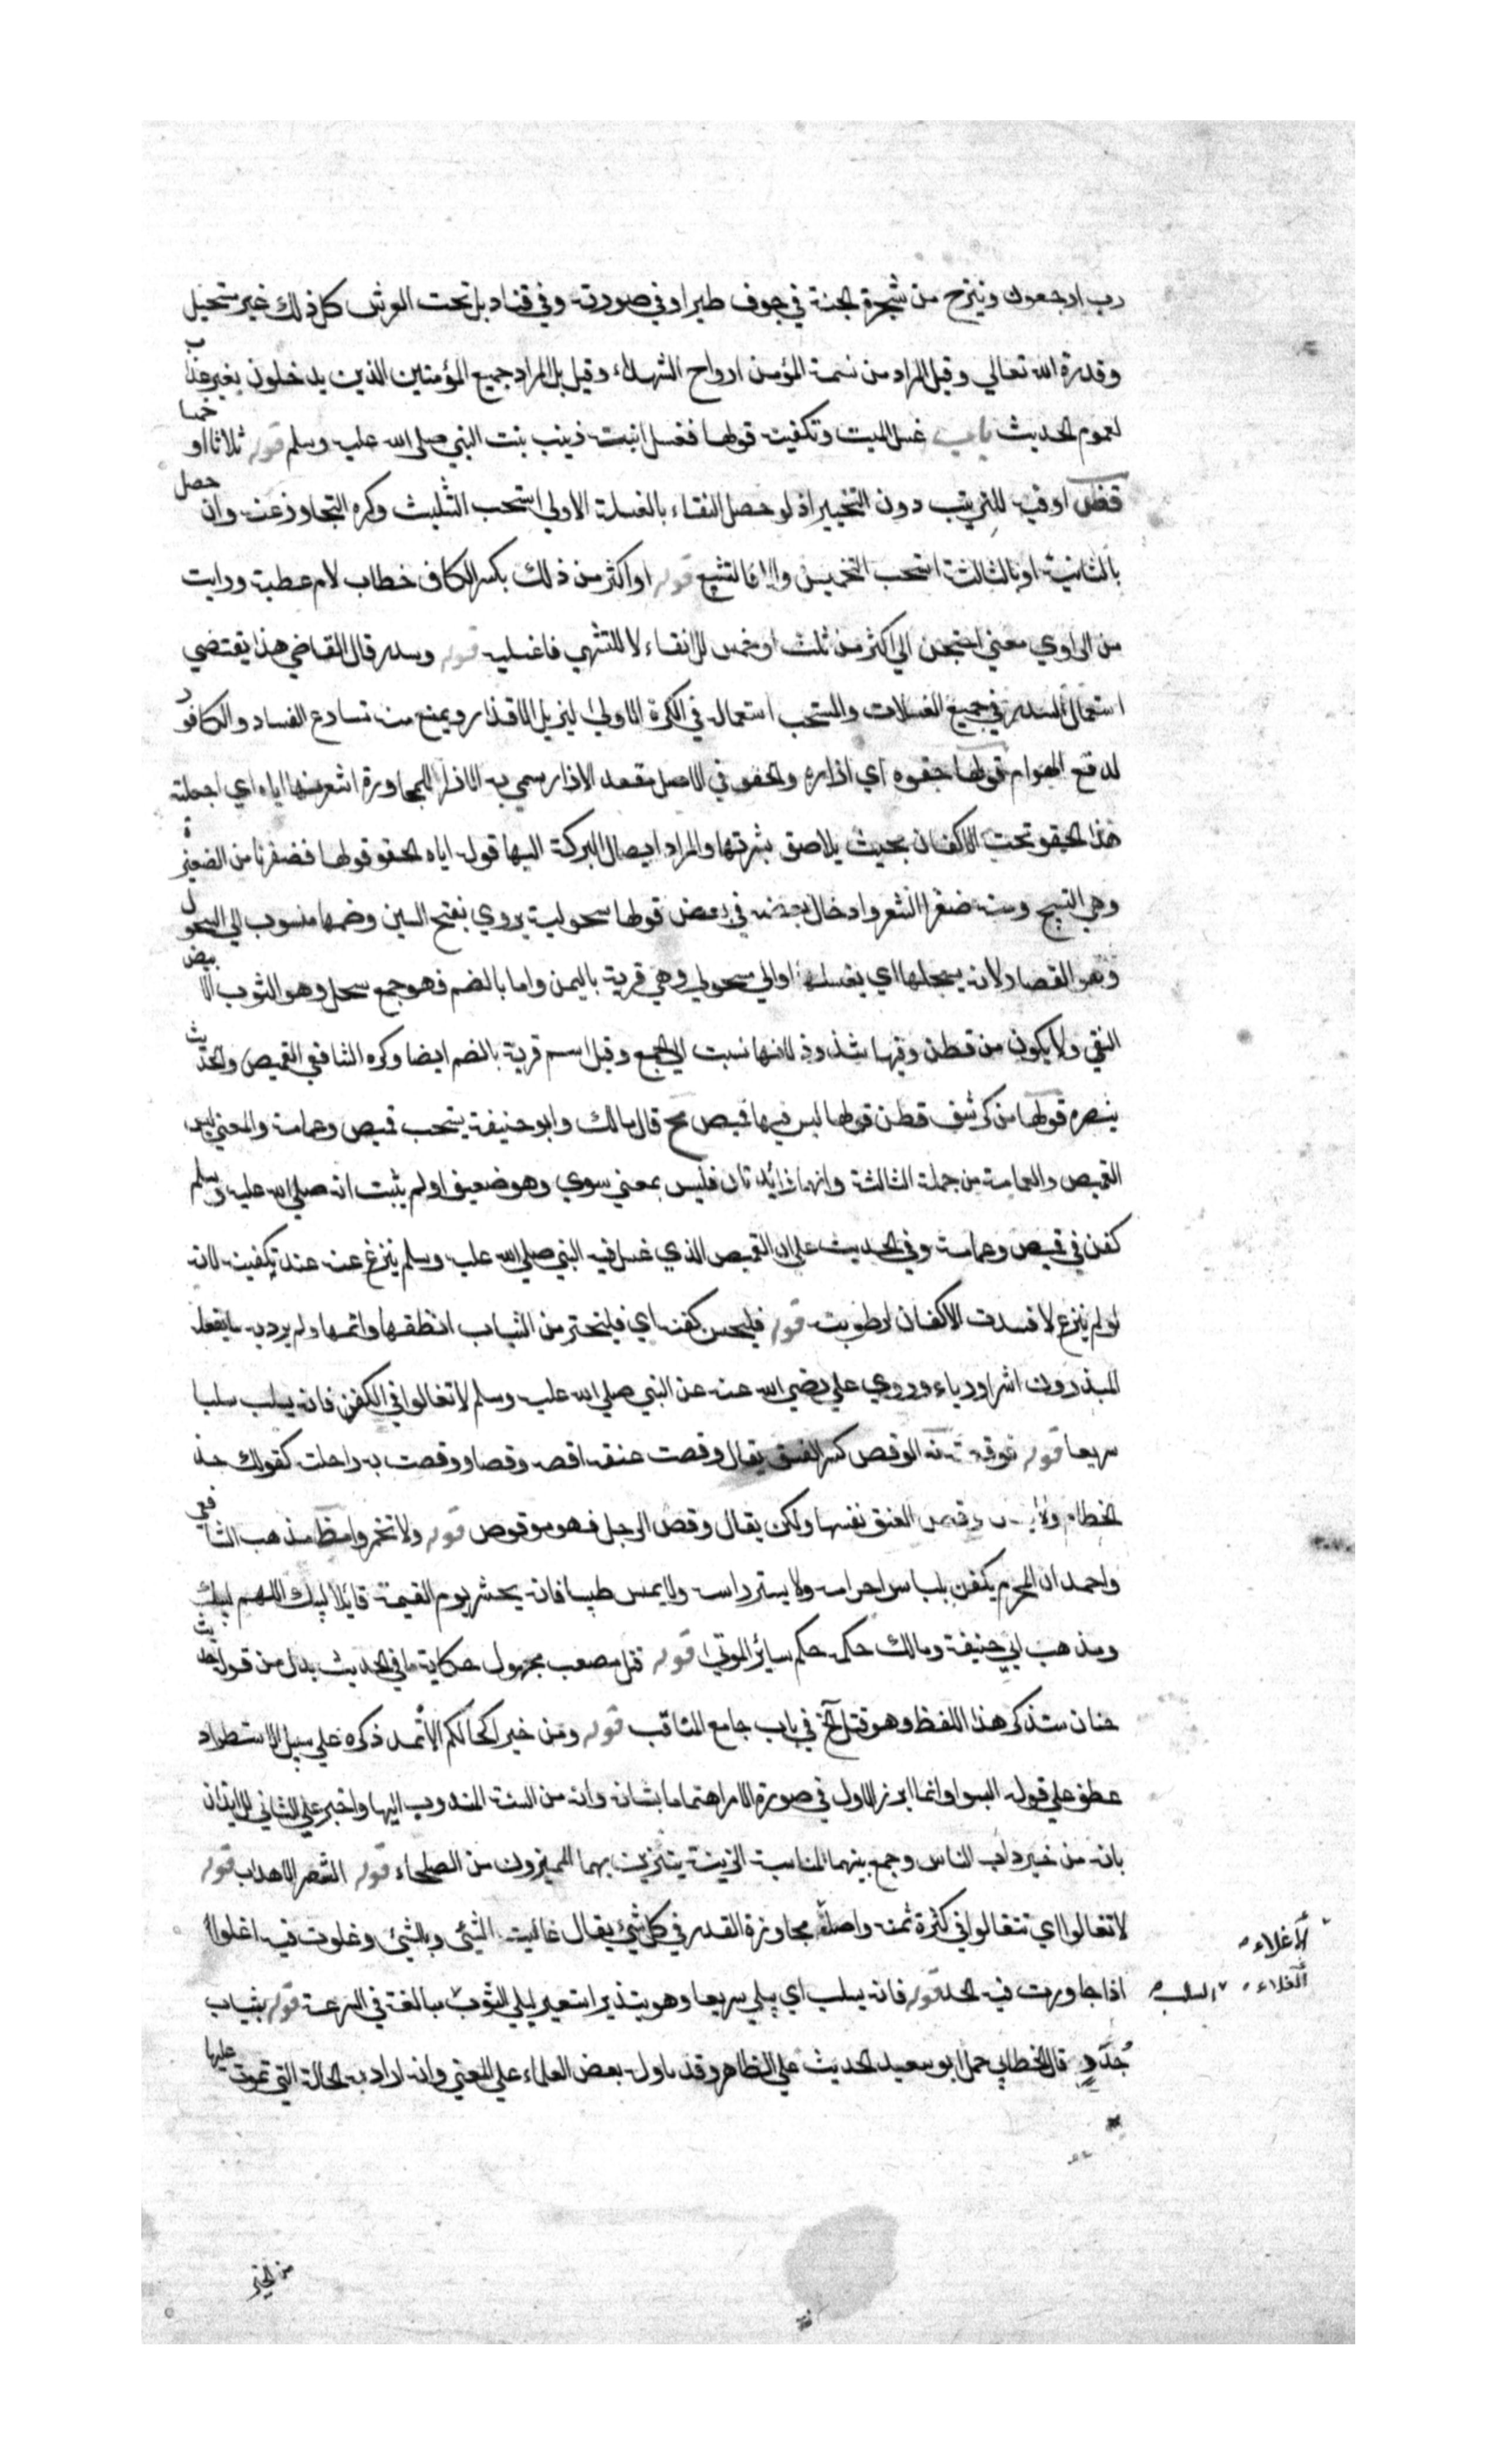 رب ارجعون ويسرح من شجرة الجنة في جوف طير او في صورته وفي قناديل تحت العرش كل ذلك غير مستحيل
وقدرة الله تعالي وقيل المراد من نسمة المؤمن ارواح الشهداء وقيل بل المراد جميع المؤمنين الذين يدخلون بغير عذاب
لعموم الحديث باب غسل الميت وتكفينه قولها نغسل ابنته زينب بنت النبي صلي الله عليه وسلم قوله ثلاثا او خمسا
او فيه للترتيب دون التخيير اذ لو حصل النقاء بالغسلة الاولي استحب التثليث وكره التجاوز عنه وان حصل
بالثانية او بالثالثة استحب التخميس والا فالتسبيع قوله او اكثر من ذلك بكسر الكاف خطاب لام عطية ورايت
من الراوي معني احتجتن الي اكثر من ثلث او خمس للانقاء لا للتشهي فاغسليه قوله وسدر قال القاضي هذا يقتضي
استعمال السدر في جميع الغسلات والمستحب استعماله في الكرة الاولي ليزيل الاقذار ويمنع منه تسارع الفساد والكافور
لدفع الهوام قولها حقوه اي ازاره والحقو في الاصل مقعد الازار سمي به الازار للمجاورة اشعرنها اياه اي اجعلنه
هذا الحقو تحت الاكفان بحيث يلاصق بشرتها والمراد ايصال البركة اليها قوله اياه الحقو قولها فضفرنا من الضفيرة
وهي النسج ومنه ضفر الشعر وادخال بعضه في بعض قولها سحولية يروي بفتح السين وضمها منسوب الي السحول
وهو القصار لانه يسحلها اي يغسلها او الي سحول وهي قرية باليمن واما بالضم فهو جمع سحل وهو الثوب الابيض
النقي ولا يكون من قطن وفيها شذوذ لانها نسبت الي الجمع وقيل اسم قرية بالضم ايضا وكره الشافعي القميص والحديث
ينصره قولها من كرسف قطن قولها ليس فيها قميص مح قال مالك وابو حنيفة يستحب قميص وعمامة والمعني ليس
القميص والعمامة من جملة الثالثة وانهما زائدتان فليس بمعني سوي وهو ضعيف اذ لم يثبت انه صلي الله عليه وسلم
كفن في قميص وعمامة وفي الحديث علي ان القميص الذي غسل فيه النبي صلي الله عليه وسلم ينزع عنه عند تكفينه لانه
لو لم ينزع لافسدت الاكفان لرطوبته قوله فليحسن كفنه اي فليختر من الثياب انظفها واتمها ولم يرد به ما يفعله
المبذرون اشرا ورياء وروي علي رضي الله عنه عن النبي صلي الله عليه وسلم لا تغالوا في الكفن فانه يسلب سلبا
سريعا قوله فوقصته الوقص كسر العنق يقال وقصت عنقه اقصه وقصا ووقصت به راحلته كقولك خذ
الخطام وقصت العنق نفسها ولكن يقال وقص الرجل فهو موقوص قوله ولا تخمروا مظ مذهب الشافعي
واحمد ان المحرم يكفن بلباس احرامه ولا يستر راسه ولا يمس طيبا فانه يحشر يوم القيمة قايلا لبيك اللهم لبيك
ومذهب ابي حنيفة ومالك حكمه حكم سائر الموتي قوله قتل مصعب مجهول حكاية ما في الحديث بدل من قوله حديث
خبان ستذكر هذا اللفظ وهو قتل الخ في باب جامع المناقب قوله ومن خير اكحالكم الاثمد ذكره علي سبيل الاستطراد
عطف علي قوله البسوا وانما ابرز الاول في صورة الامر اهتماما بشانه وانه من السنة المندوب اليها واخبر علي الثاني للايذان
بانه من خير داب الناس وجمع بينهما لمناسبة الزينة يتزين بهما المميزون من الصلحاء قوله الشعر الاهداب قوله
لا تغالوا اي تتغالوا في كثرة ثمنه واصله مجاوزة القدر في كل شيء يقال غاليت الشيء وبالشيء وغلوت فيه اغلوا
الاغلاء
الغلاء
السلب
اذا جاوزت فيه الحد قوله فانه يسلب اي يبلي سريعا وهو تبذير استعير لبلي الثوب مبالغة في السرعة قوله بثياب
جدد قال الخطابي حمل ابو سعيد الحديث علي الظاهر وقد ماوله بعض العلماء علي المعني وانه اراد به الحالة التي تموت عليها
من الخير